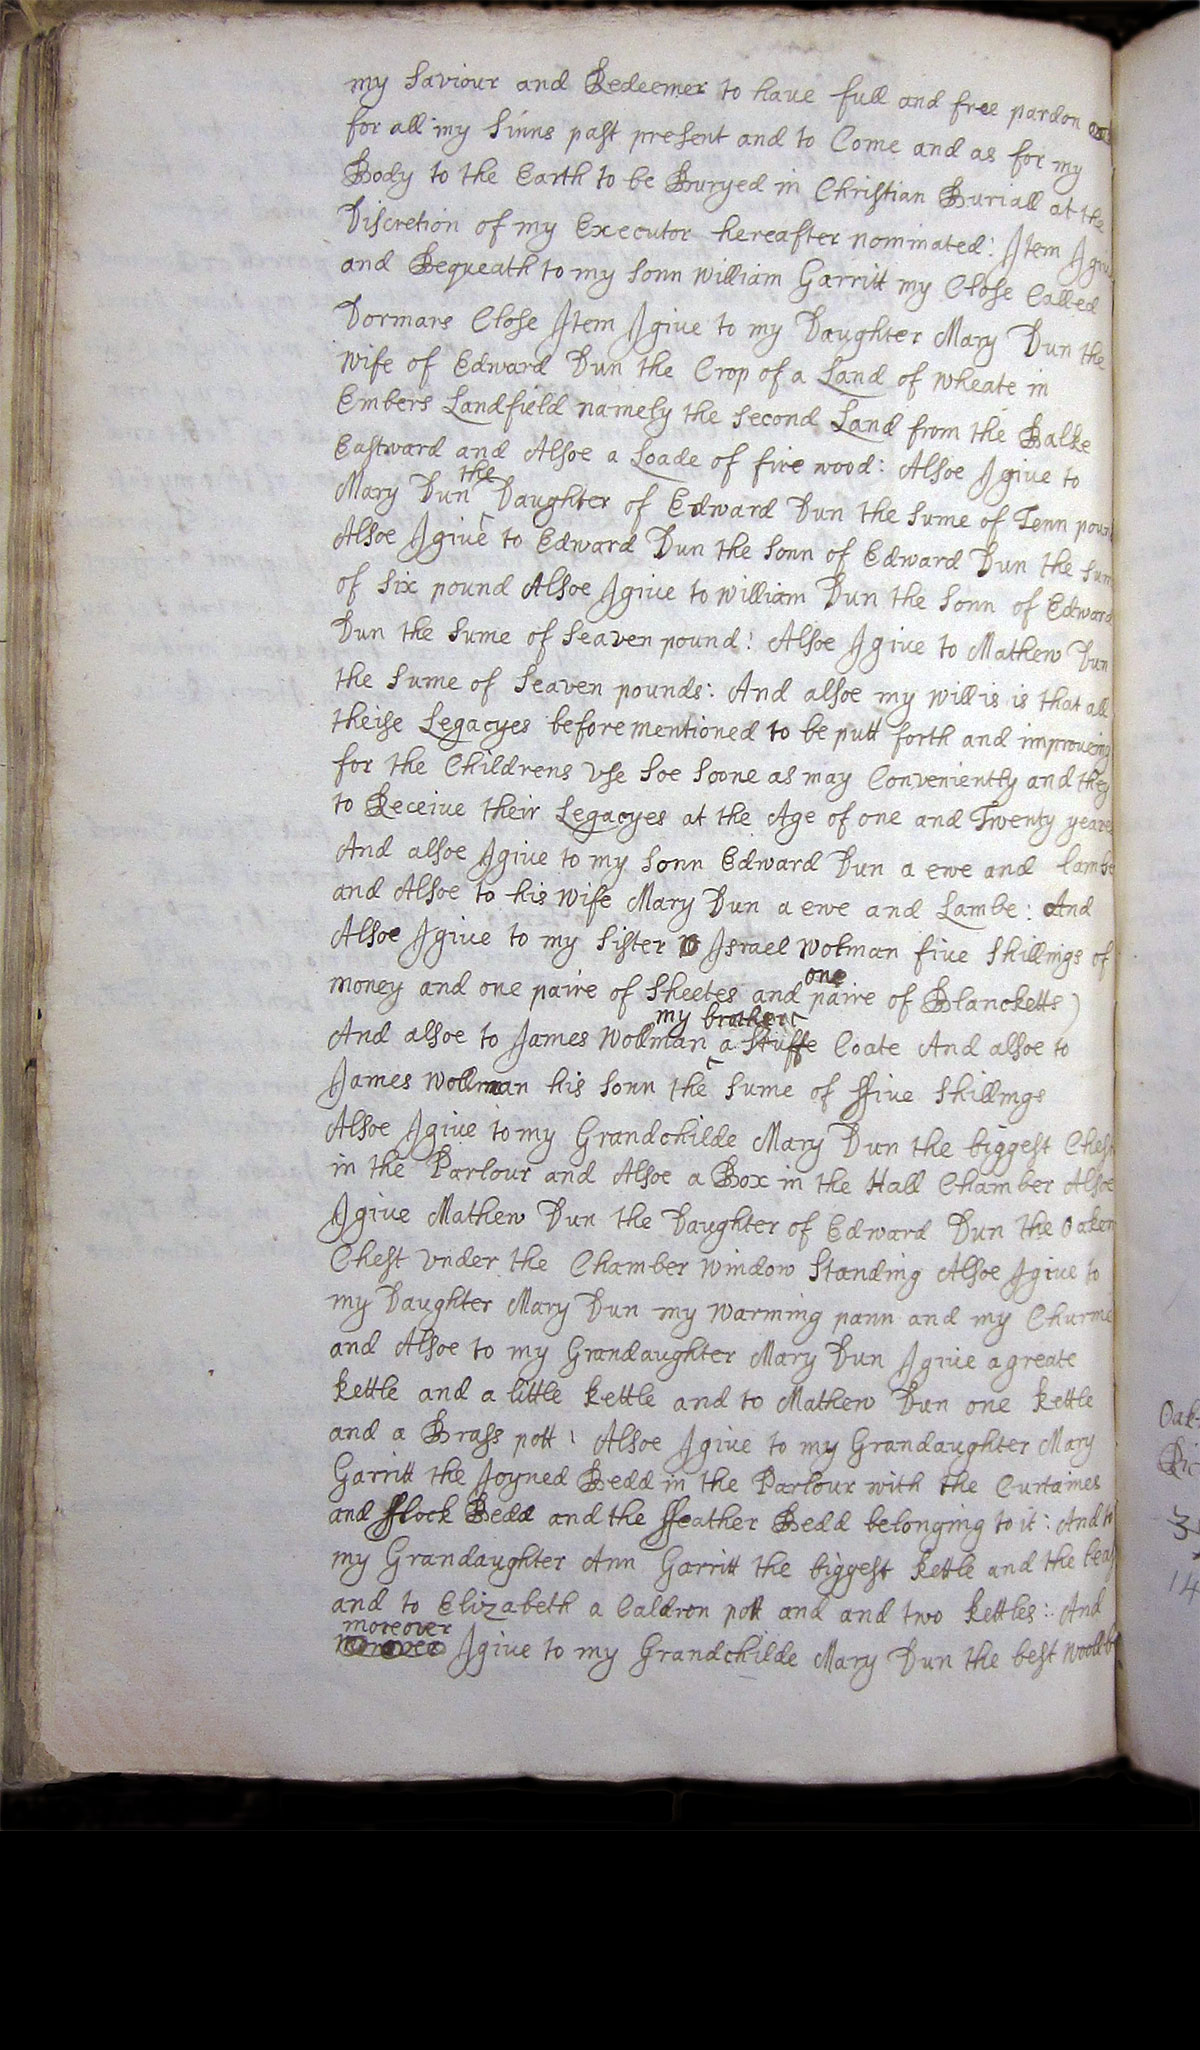 my Saviour and Redeemer to have full and free pardon
for all my Sinns past present and to Come and as for my
Body to the Earth to be Buryed in Christian Buriall at the
Discretion of my Executor hereafter nominated: Item I give
and Bequeath to my Sonn William Garritt my Close Called
Dormars Close Item I give to my Daughter Mary Dun the
Wife of Edward Dun the Crop of a Land of Wheate in
Embers Landfield namely the Second Land from the Balke
Eastward and Alsoe a Loade of fire wood: Alsoe I give to
the
Mary Dun Daughter of Edward Dun the Sume of Tenn pound
Alsoe I give to Edward Dun the Sonn of Edward Dun the Sum
of Six pound Alsoe I give to William Dun the Sonn of Edward
Dun the Sume of Seaven pound: Alsoe I give to Mathew Dun
the Sume of Seaven pounds: And alsoe my will is is that all
theise Legacyes before mentioned to be putt forth and improveing
for the Childrens Vse Soe Soone as may Conveniently and they
to Receive their Legacyes at the Age of one and Twenty yeares
And alsoe I give to my Sonn Edward Dun a ewe and lambe
and Alsoe to his Wife Mary Dun a ewe and Lambe: And
Alsoe I give to my Sister Israel Wolman five Shillings of
one
money and one paire of Sheetes and paire of Blancketts)
my brother
And alsoe to James Wollman a Stuffe Coate And alsoe to
James Wollman his Sonn the Sume of ffive Shillings
Alsoe I give to my Grandchilde Mary Dun the biggest Chest
in the Parlour and Alsoe a Box in the Hall Chamber Alsoe
I give Mathew Dun the Daughter of Edward Dun the Oaken
Chest Vnder the Chamber Window Standing Alsoe I give to
my Daughter Mary Dun my Warming pann and my Churme
and Alsoe to my Grandaughter Mary Dun I give a greate
kettle and a little kettle and to Mathew Dun one kettle
and a Brass pott: Alsoe I give to my Grandaughter Mary
Garritt the Joyned Bedd in the Parlour with the Curtaines
and fflock Bedd and the ffeather Bedd belonging to it: And to
my Grandaughter Ann Garritt the biggest kettle and the
and to Elizabeth a Caldron pott and and two kettles: And
moreover
I give to my Grandchilde Mary Dun the best
Oak
3
14